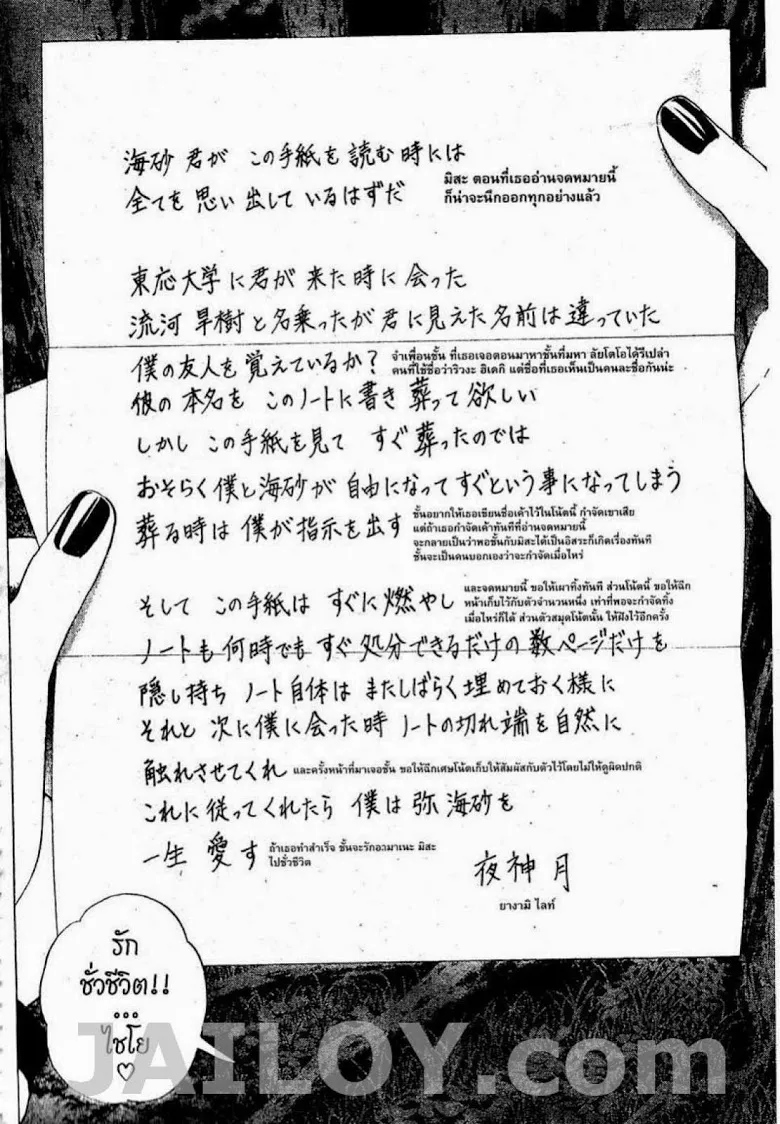 海砂 君が この手紙を 読む時には
全てを 思い 出して いるはずだ
มิสะ ตอนที่เธออ่านจดหมายนี้
ก็น่าจะนึกออกทุกอย่างแล้ว
東応大学に君が 来た時に会った
流河 旱樹と名乗ったが君に見えた名前は違っていた
僕の友人を覚えているか?
จำเพื่อนชั้น ที่เธอเจอตอนมาหาชั้นที่มหา ลัยโตโอได้รึเปล่า
คนที่ใช้ชื่อว่าริวงะ ฮิเดกิ แต่ชื่อที่เธอเห็นเป็นคนละชื่อกันน่ะ
彼の本名を このノートに書き葬って欲しい
しかし この手紙を見て すぐ葬ったのでは
おそらく僕と海砂が 自由になってすぐという事になってしまう
葬る時は 僕が指示を出す
ชั้นอยากให้เธอเขียนชื่อเค้าไว้ในโน้ตนี้ กำจัดเขาเสีย
แต่ถ้าเธอกำจัดเค้าทันทีที่อ่านจดหมายนี้
จะกลายเป็นว่าพอชั้นกับมิสะได้เป็นอิสระก็เกิดเรื่องทันที
ชั้นจะเป็นคนบอกเองว่าจะกำจัดเมื่อไหร่
そして この手紙は すぐに燃やし
และจดหมายนี้ ขอให้เผาทิ้งทันที ส่วนโน้ตนี้ ขอให้ฉีก
หน้าเก็บไว้กับตัวจำนวนหนึ่ง เท่าที่พอจะกำจัดทิ้ง
เมื่อไหร่ก็ได้ ส่วนตัวสมุดโน้ตนั้น ให้ฝังไว้อีกครั้ง
ノートも何時でもすぐ処分できるだけの数ページだけを
隠し持ち ノート自体は またしばらく埋めておく様に
それと 次に僕に会った時 ノートの切れ端を自然に
触れさせてくれ
และครั้งหน้าที่มาเจอชั้น ขอให้ฉีกเศษโน้ตเก็บให้สัมผัสกับตัวไว้โดยไม่ให้ดูผิดปกติ
これに従ってくれたら 僕は弥 海砂を
一生 愛す
ถ้าเธอทำสำเร็จ ชั้นจะรักอามาเนะ มิสะ
ไปชั่วชีวิต
夜神 月
ยางามิ ไลท์
รัก
ชั่วชีวิต!!
...
ไชโย
♡
JAILOY.com